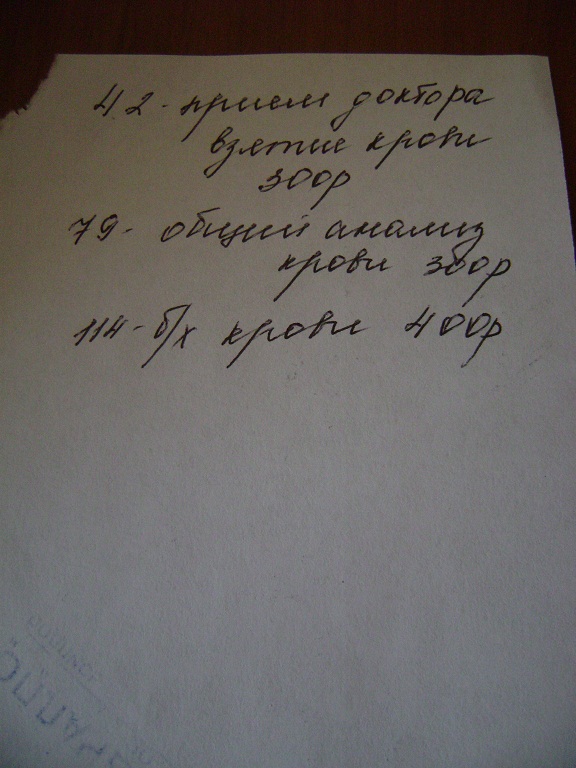 42 - прием доктора
взятие крови
300р
79 - общий анализ
крови 300р
114 - б/х крови 400р